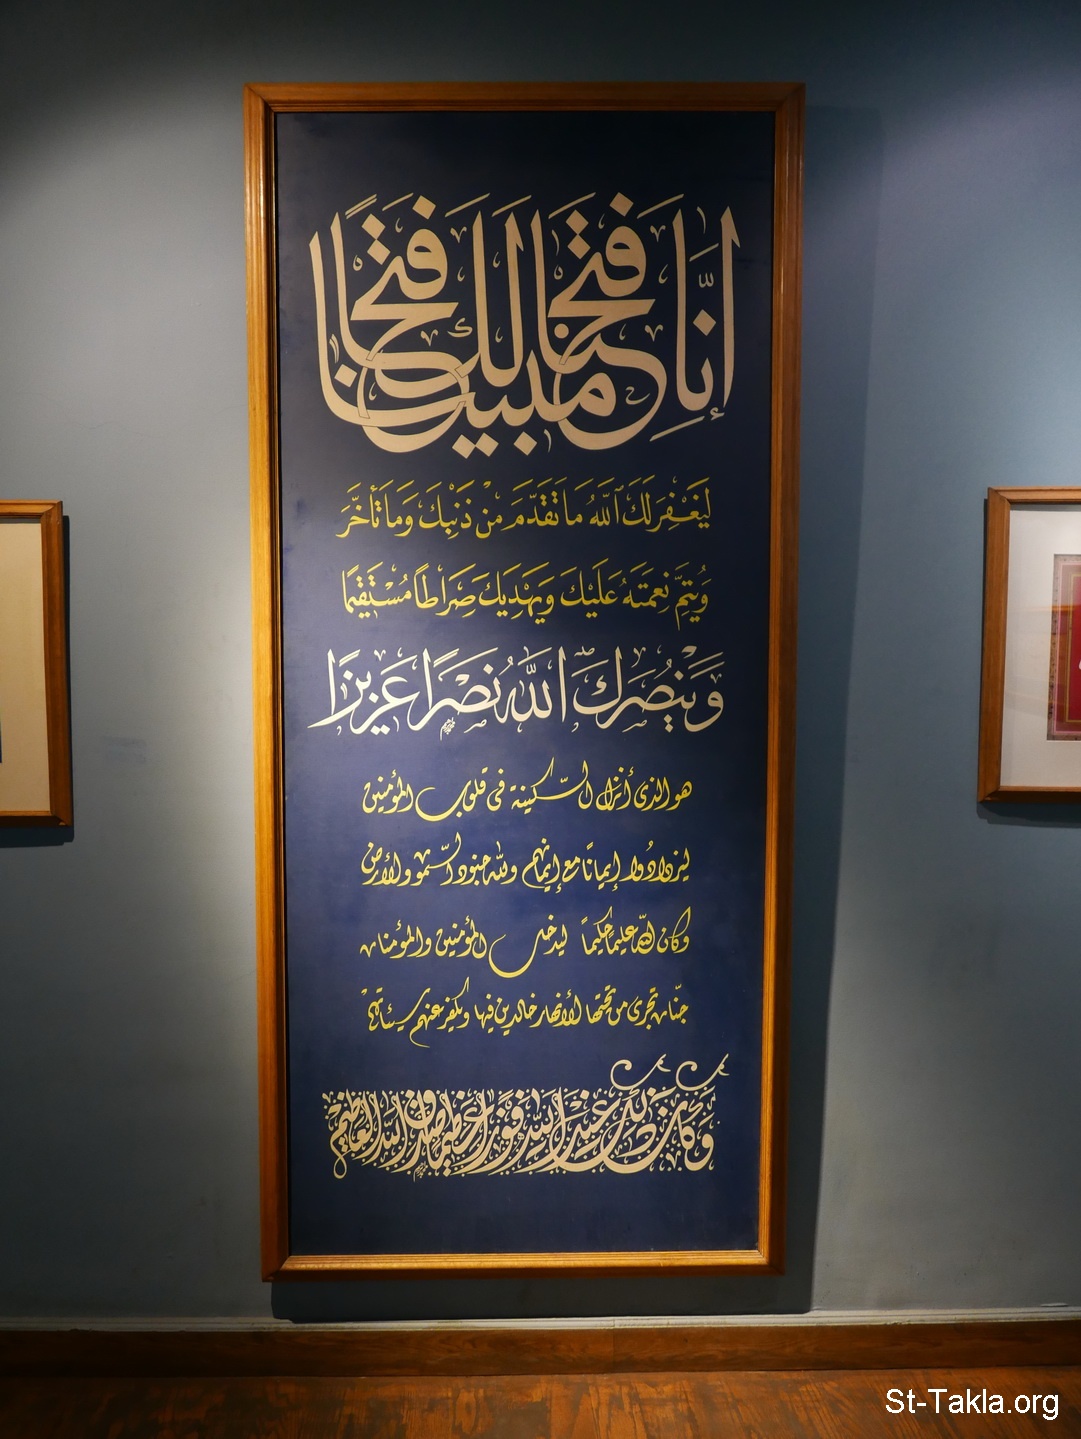 إِنَّا فَتَحْنَا لَكَ فَتْحًا مُبِينًا
لِيَغْفِرَ لَكَ ٱللَّهُ مَا تَقَدَّمَ مِنْ ذَنْبِكَ وَمَا تَأَخَّرَ
وَيُتِمَّ نِعْمَتَهُ عَلَيْكَ وَيَهْدِيَكَ صِرَاطًا مُسْتَقِيمًا
وَيَنْصُرَكَ ٱللَّهُ نَصْرًا عَزِيزًا
هو الذى أنزل السّكينة فى قلوب المؤمنين
ليزدادُوا إيمانًا مع إيمانهم ولله جنود السّموات والأرض
وكان الله عليمًا حكيمًا ليدخل المؤمنين والمؤمنات
جنّات تجرى من تحتها الأنهار خالدين فيها ويكفر عنهم سيئاتهم
وكان ذلك عند الله فوزا عظيما صدق الله العظيم
St-Takla.org